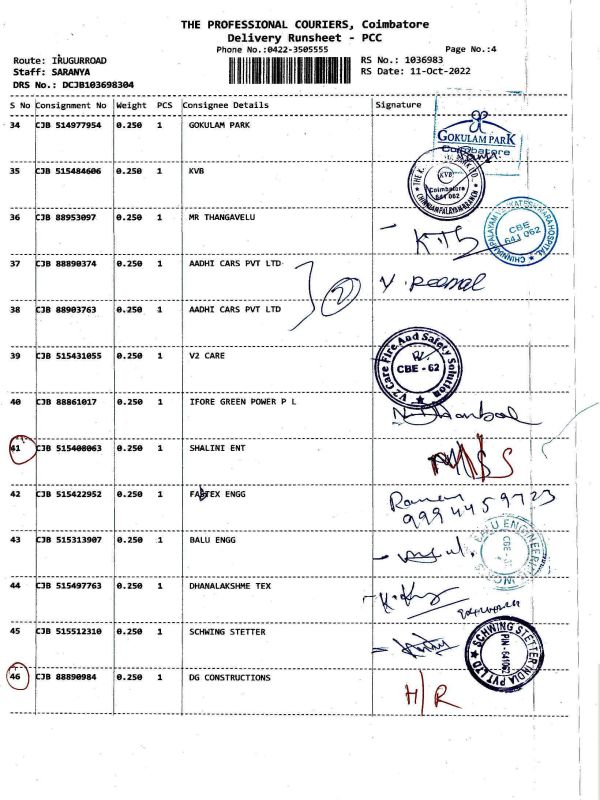 THE PROFESSIONAL COURIERS, Coimbatore
Delivery Runsheet - PCC
Phone No.:0422-3505555
Page No.:4
Route: IRUGURROAD
RS No.: 1036983
Staff: SARANYA
RS Date: 11-Oct-2022
DRS No.: DCJB103698304
S No Consignment No Weight PCS Consignee Details Signature
34 CJB 514977954 0.250 1 GOKULAM PARK
GOKULAM PARK
Coimbatore
35 CJB 515484606 0.250 1 KVB
KVB
Coimbatore
641 062
CHINNIAMPALAYAM BRANCH
36 CJB 88953097 0.250 1 MR THANGAVELU
CBE
641 062
37 CJB 88890374 0.250 1 AADHI CARS PVT LTD
2
38 CJB 88903763 0.250 1 AADHI CARS PVT LTD
39 CJB 515431055 0.250 1 V2 CARE
V2 Care Fire And Safety Solution
CBE - 62
40 CJB 88861017 0.250 1 IFORE GREEN POWER P L
41 CJB 515408063 0.250 1 SHALINI ENT
42 CJB 515422952 0.250 1 FABTEX ENGG
9994459723
43 CJB 515313907 0.250 1 BALU ENGG
BALU ENGINEERING
44 CJB 515497763 0.250 1 DHANALAKSHME TEX
45 CJB 515512310 0.250 1 SCHWING STETTER
SCHWING STETTER INDIA PVT LTD
46 CJB 88890984 0.250 1 DG CONSTRUCTIONS
H/R